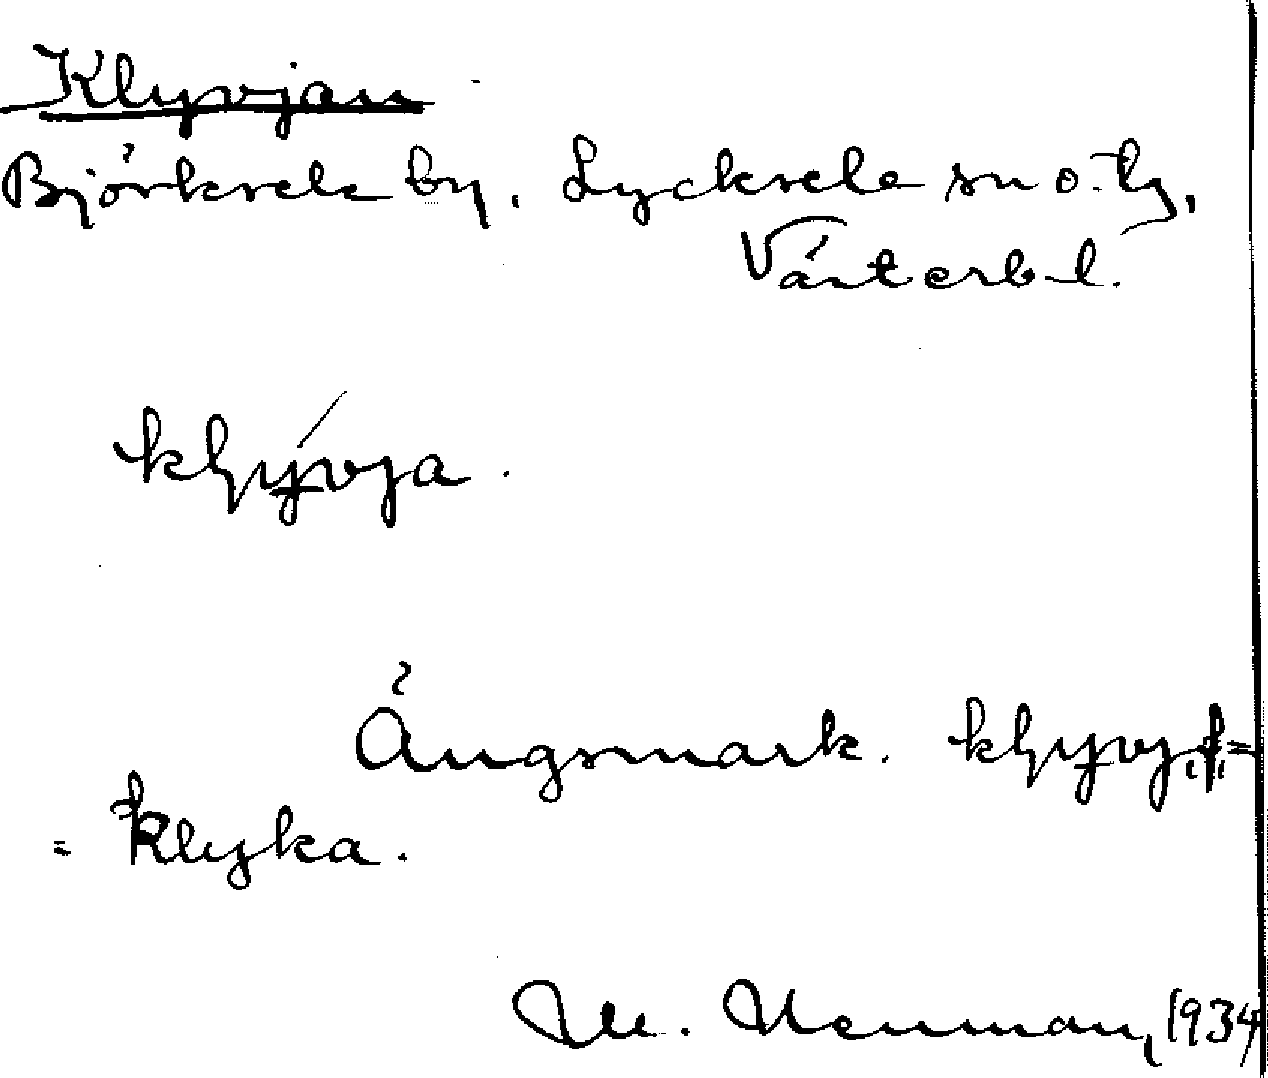 Klyvjan
Björksele by, Lycksele sn o. tg,
Västerb. l.
klyvja.
Ängsmark. klyvj
= klyka.
M. Wenman, 1934